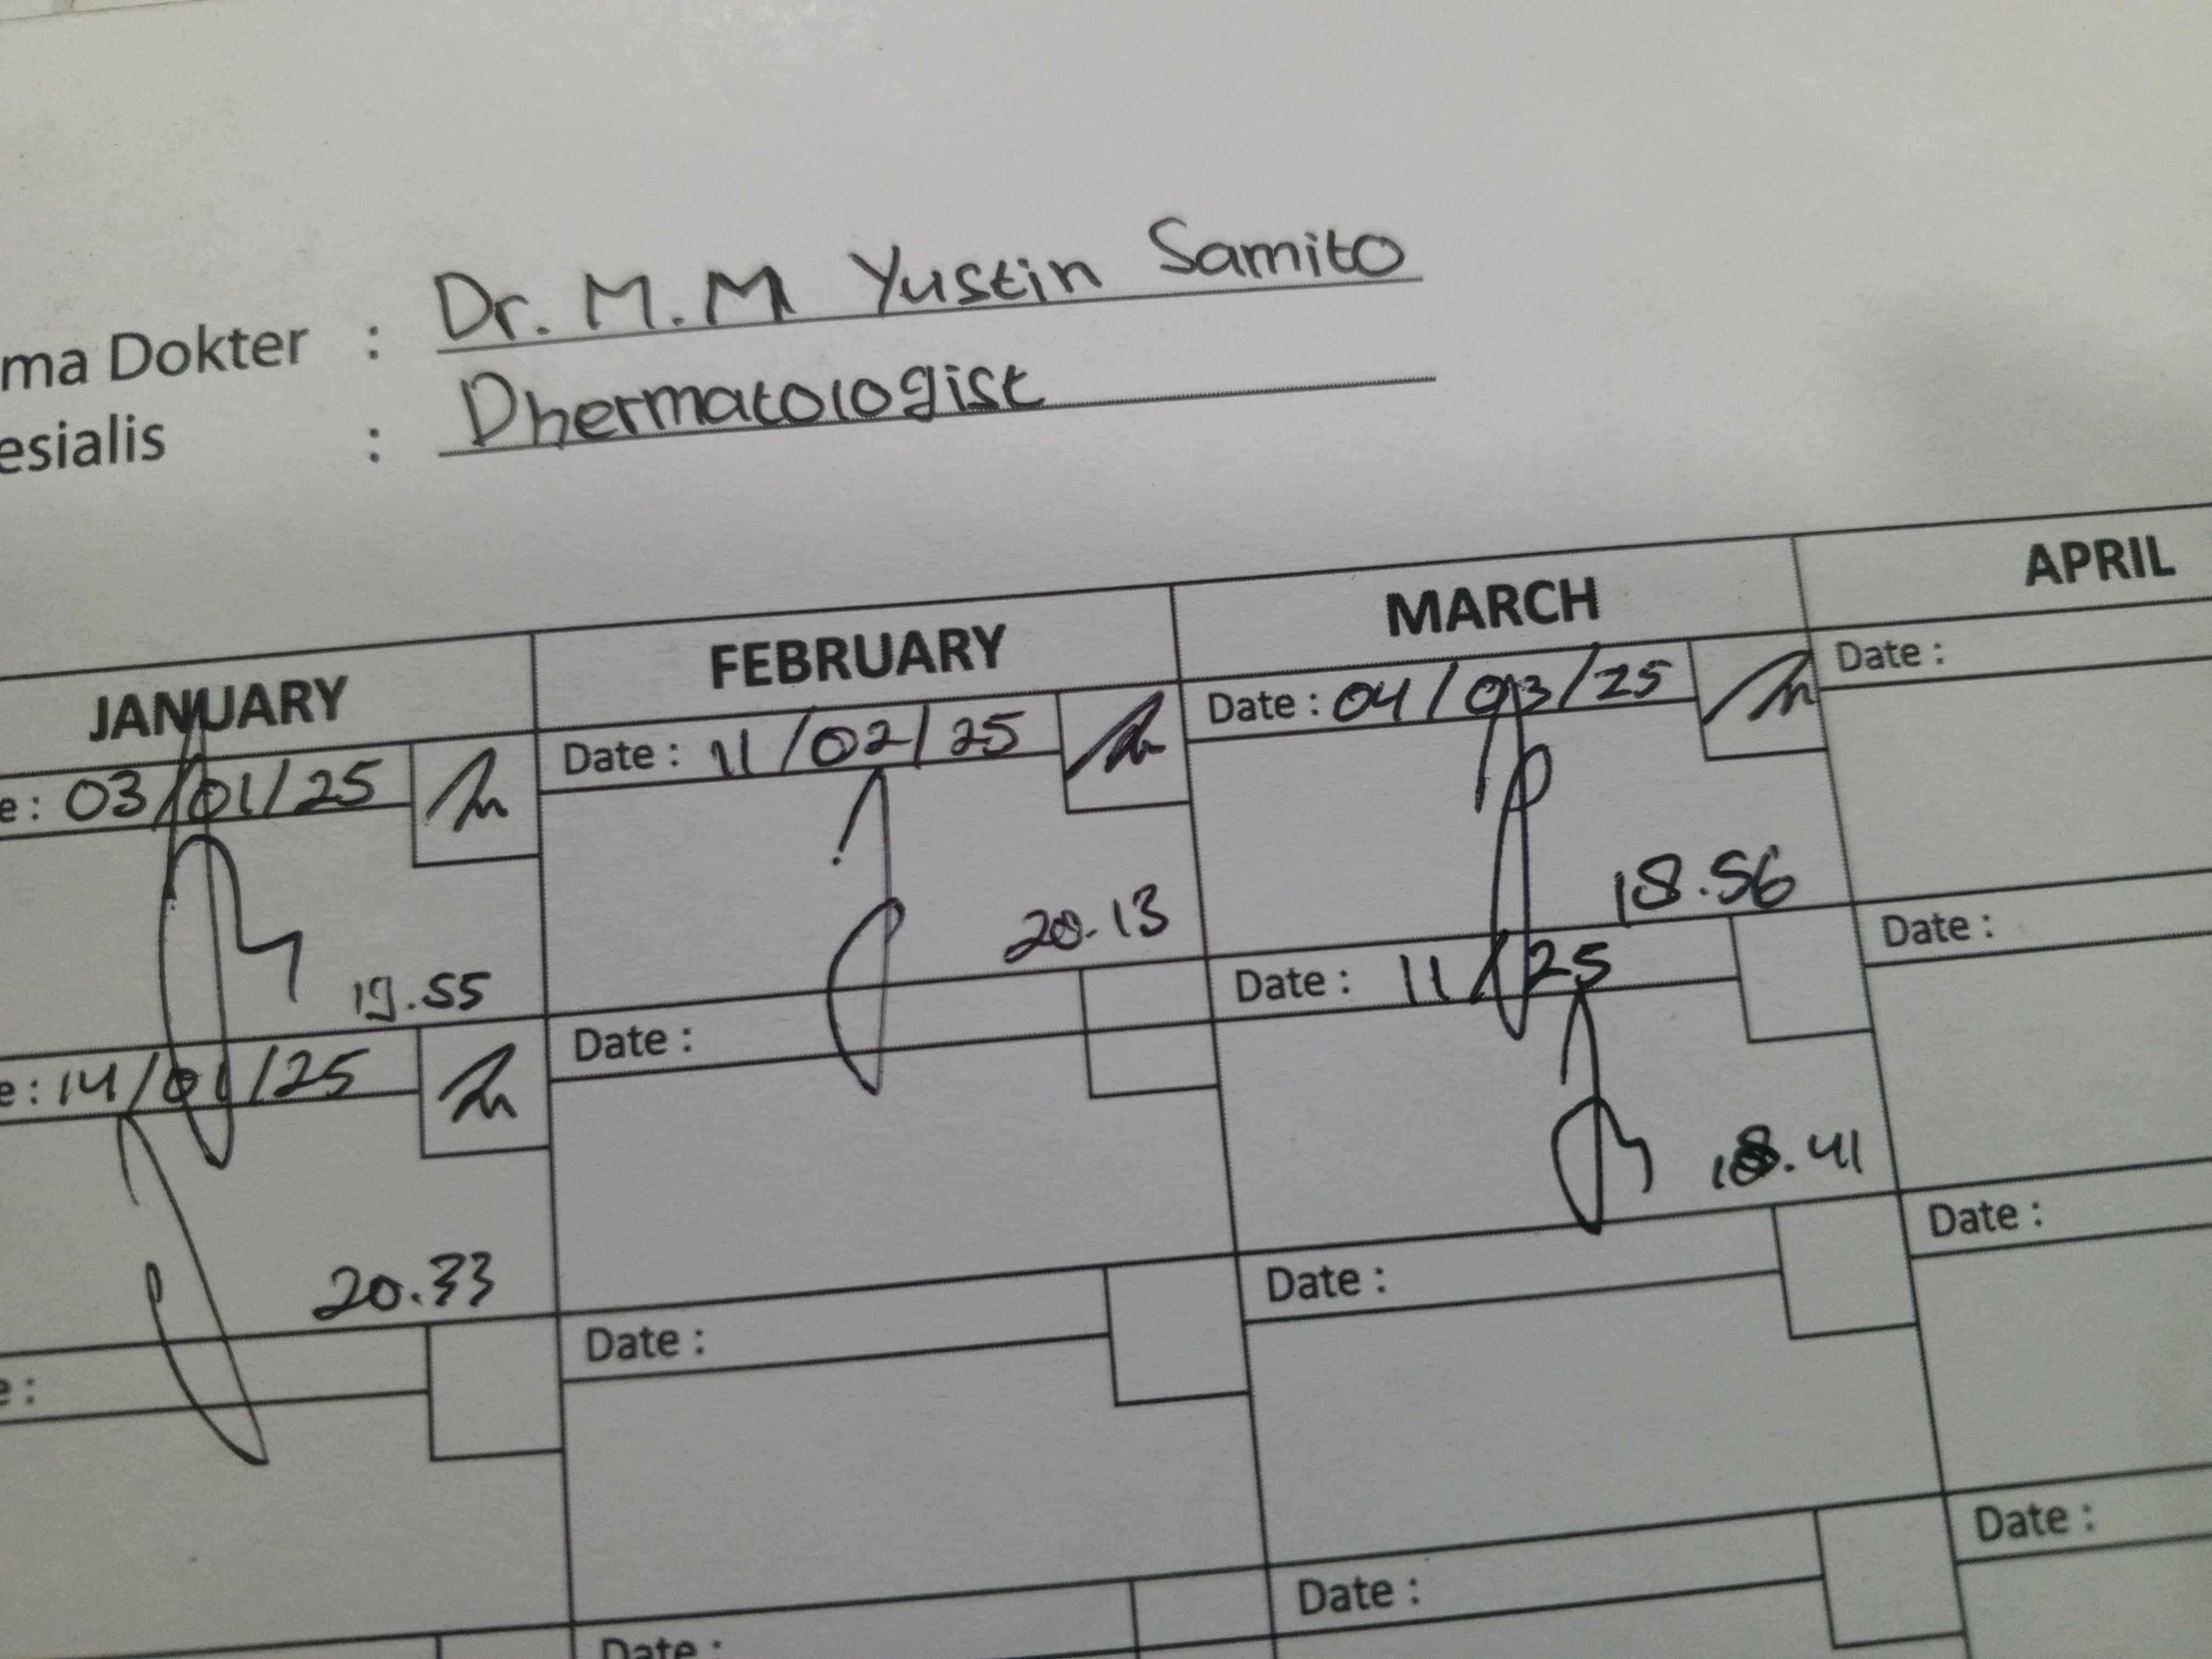 ma Dokter : Dr. M.M Yustin Samito
esialis : Dhermatologist
JANUARY FEBRUARY MARCH APRIL
e : 03/01/25 Date : 11/02/25 Date : 04/03/25 Date :
19.55 20.13 18.56
e : 14/01/25 Date : Date : 11/25 Date :
20.33 18.41
e : Date : Date : Date :
Date : Date : Date :